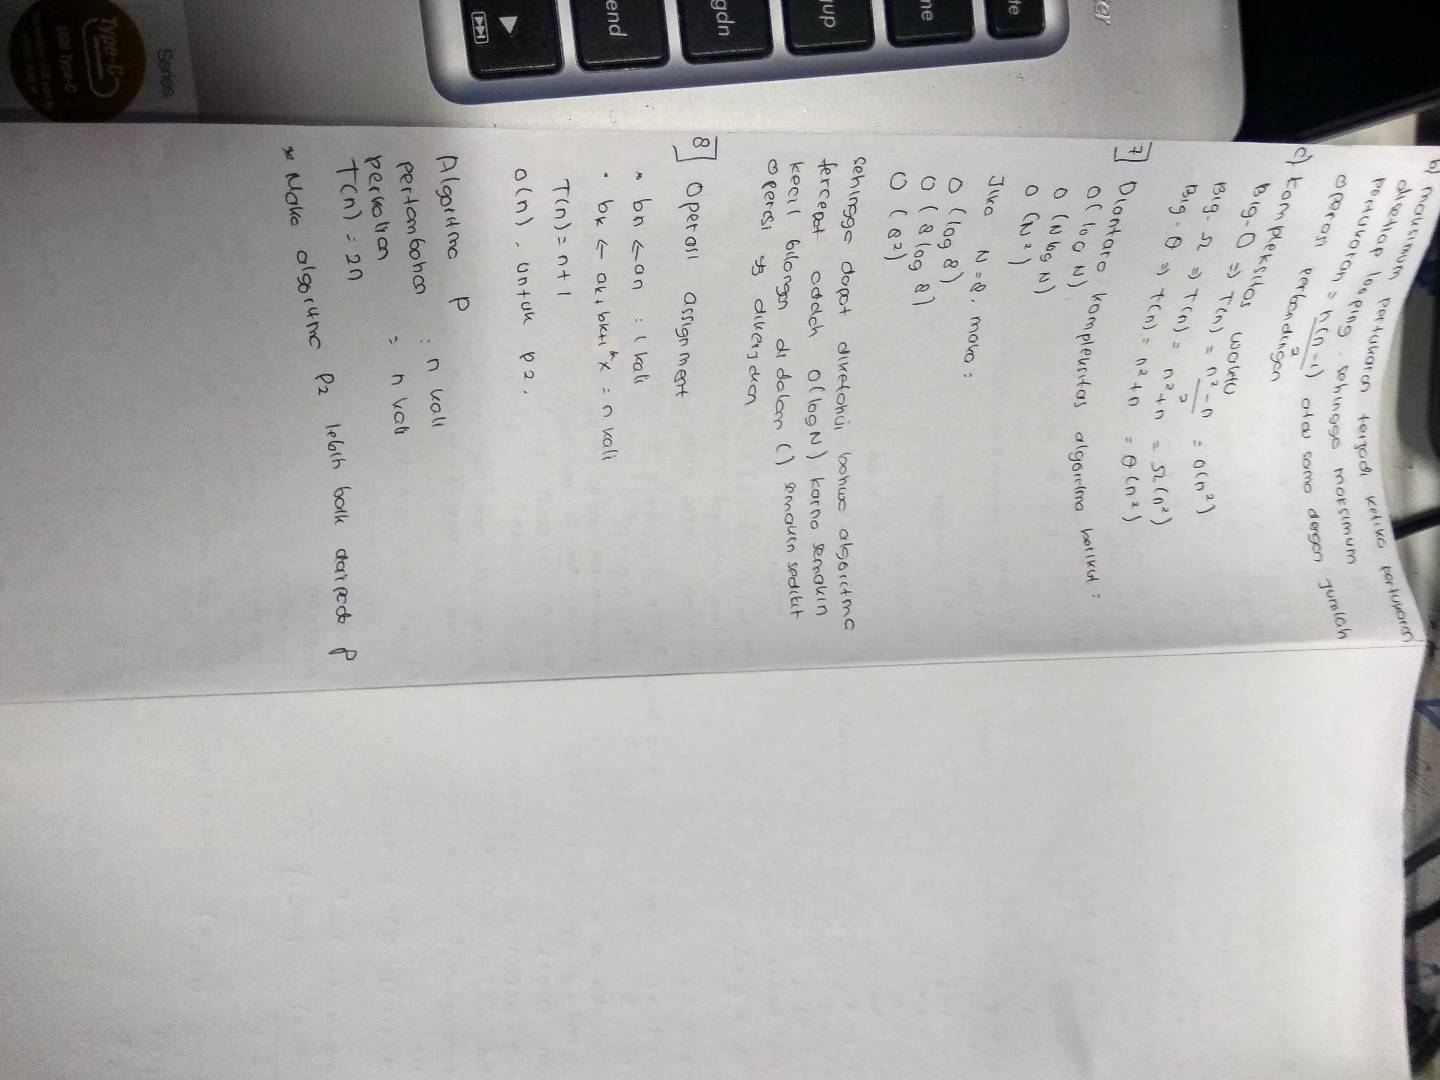 b) maksimum pertukaran terjadi ketika pertukaran
disetiap looping. sehingga maksimum
pertukaran = n(n-1)/2 atau sama dengan jumlah
operasi perbandingan
c) Kompleksitas waktu
Big-O => T(n) = n²-n/2 = O(n²)
Big-Ω => T(n) = n²+n = Ω(n²)
Big-θ => T(n) = n²+n = θ(n²)
7 Diantara kompleksitas algoritma berikut :
O(log N)
O(N log N)
O(N²)
Jika N=8, maka :
O(log 8)
O(8 log 8)
O(8²)
sehingga dapat diketahui bahwa algoritma
tercepat adalah O(log N) karna semakin
kecil bilangan di dalam () semakin sedikit
operasi yg dikerjakan
8 Operasi assignment
• bn ← an : 1 kali
• bk ← ak + bk+1 * x = n kali
T(n) = n+1
O(n), untuk P2.
Algoritma P
pertambahan : n kali
perkalian = n kali
T(n) = 2n
* Maka algoritma P2 lebih baik daripada P
end
gdn
Series
Type-C
USB Type-C